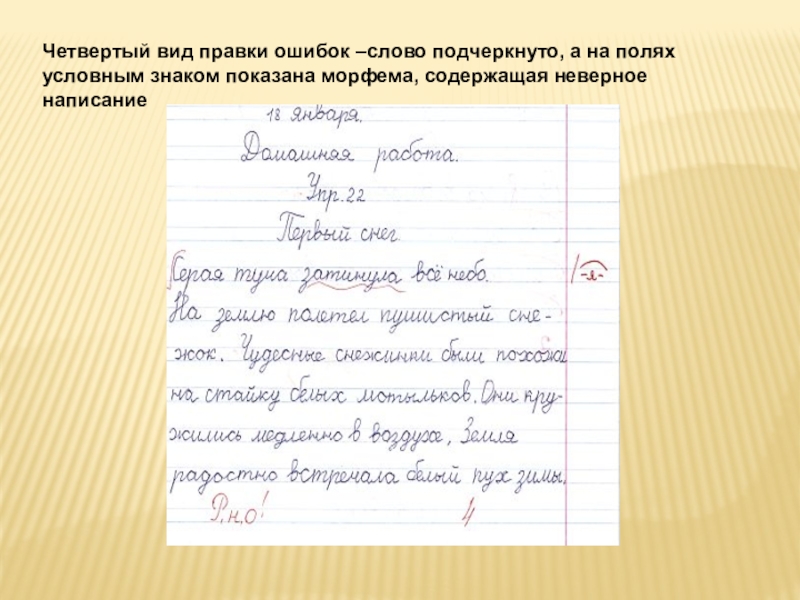 Четвертый вид правки ошибок –слово подчеркнуто, а на полях
условным знаком показана морфема, содержащая неверное
написание
18 января.
Домашняя работа.
Упр.22
Первый снег
Серая туча затинула всё небо.
/ -я-
На землю полетел пушистый сне-
жок. Чудесные снежинки были похожи
на стайку белых мотыльков. Они кру-
жились медленно в воздухе, Земля
радостно встречала белый пух зимы.
Р.н.о! 4